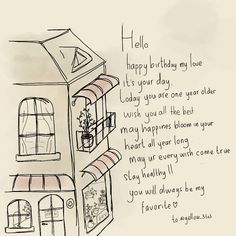 Hello
happy birthday my love
it's your day.
today you are one year older
wish you all the best
may happines bloom in your
heart all year long
may ur every wish come true
stay healthy!!
you will always be my
favorite
to